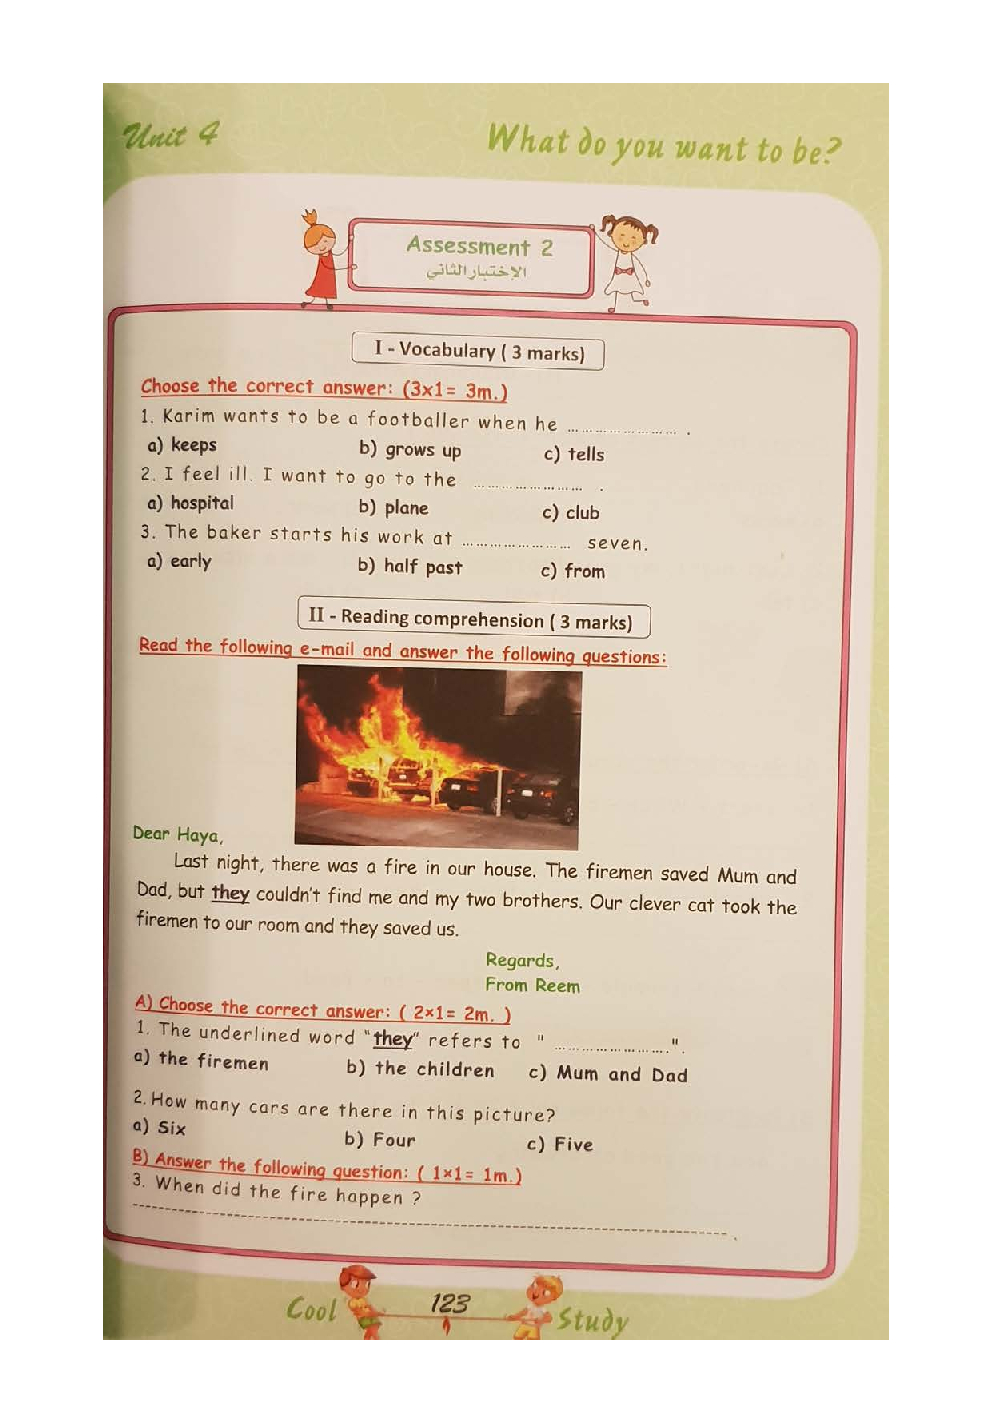 Unit 4
What do you want to be?
Assessment 2
الإختبار الثاني
I - Vocabulary ( 3 marks)
Choose the correct answer: (3x1= 3m.)
1. Karim wants to be a footballer when he ........................ .
a) keeps b) grows up c) tells
2. I feel ill. I want to go to the ........................ .
a) hospital b) plane c) club
3. The baker starts his work at ........................ seven.
a) early b) half past c) from
II - Reading comprehension ( 3 marks)
Read the following e-mail and answer the following questions:
Dear Haya,
Last night, there was a fire in our house. The firemen saved Mum and
Dad, but they couldn't find me and my two brothers. Our clever cat took the
firemen to our room and they saved us.
Regards,
From Reem
A) Choose the correct answer: ( 2x1= 2m. )
1. The underlined word "they" refers to " ........................".
a) the firemen b) the children c) Mum and Dad
2. How many cars are there in this picture?
a) Six b) Four c) Five
B) Answer the following question: ( 1x1= 1m.)
3. When did the fire happen ?
------------------------------------------------------------ .
Cool 123 Study